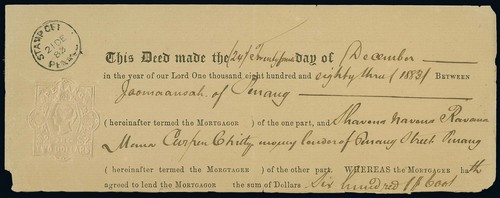 STAMP OFF
21 DE
83
PENA
This Deed made the (24th) Twenty four day of December
in the year of our Lord One thousand eight hundred and eighty three (1883) BETWEEN
Joomaansah of Penang
( hereinafter termed the MORTGAGOR ) of the one part, and Shavena Navena Ravana
Mana Curpen Chitty money lender of Penang Street Penang
( hereinafter termed the MORTGAGEE ) of the other part. WHEREAS the MORTGAGEE hath
agreed to lend the MORTGAGOR the sum of Dollars Six hundred